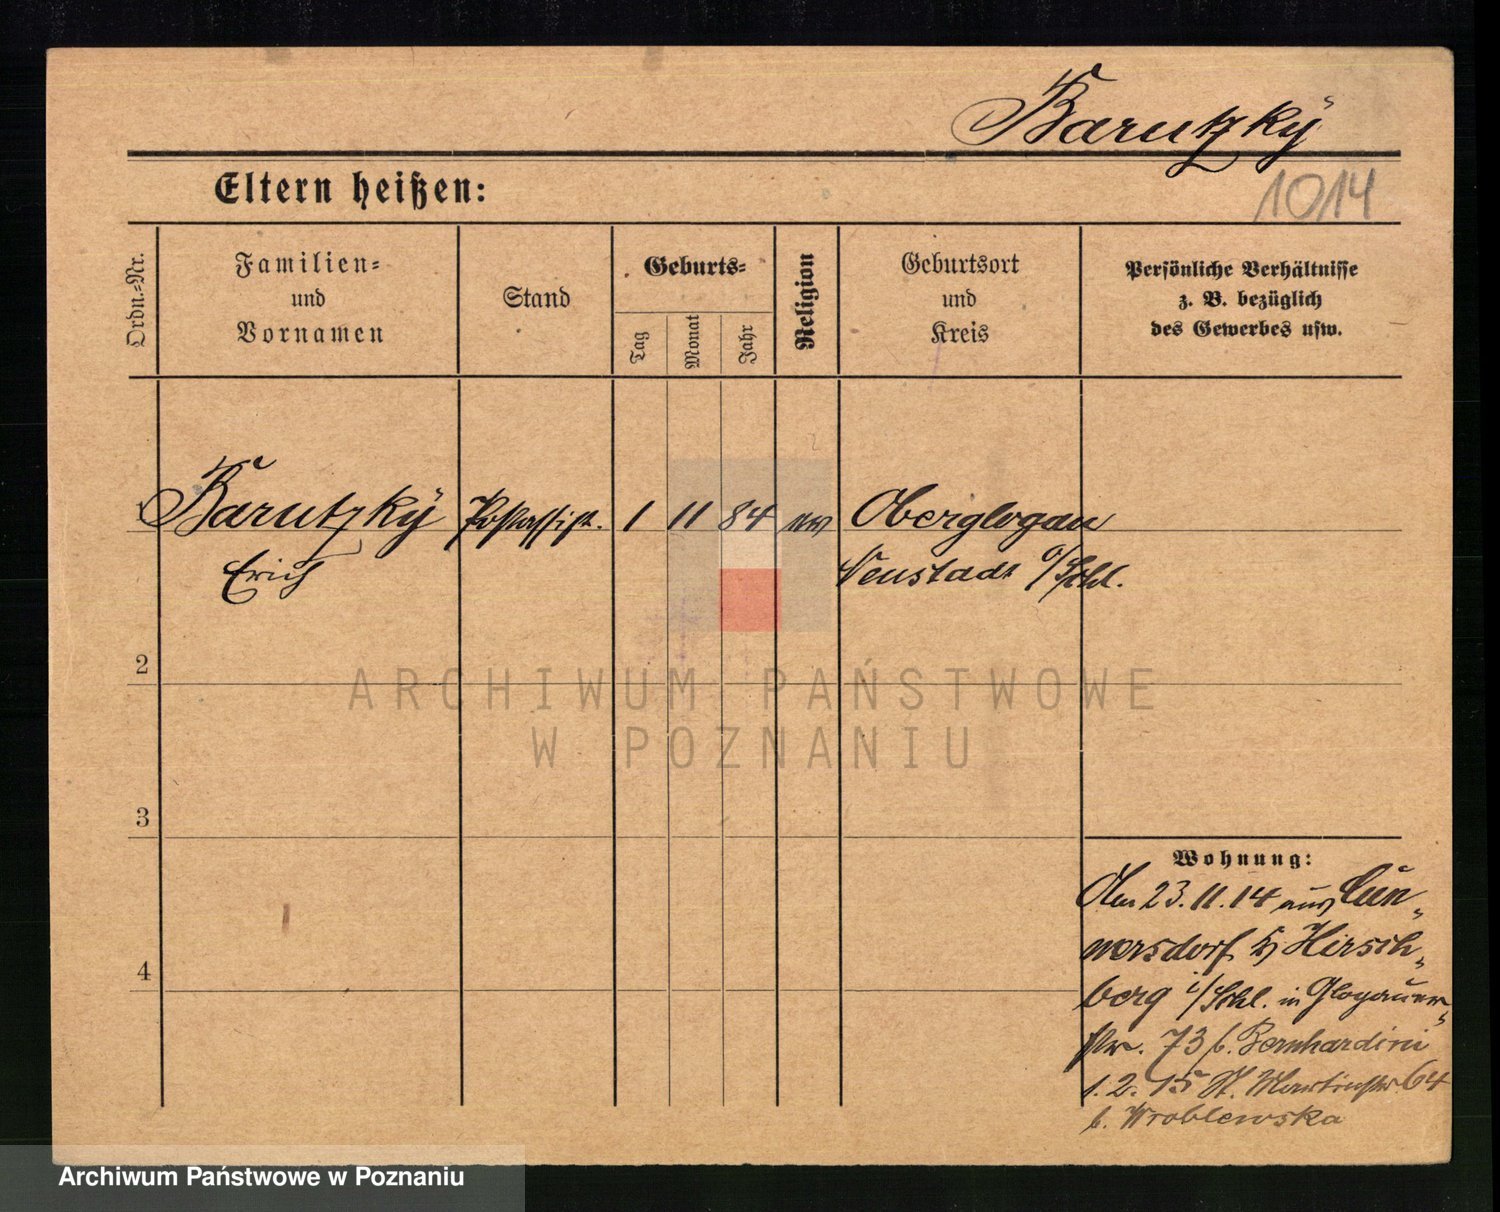 Barutzký
Eltern heißen:
1014
Ordn.-Nr.
Familien-
und
Vornamen
Stand
Geburts-
Tag
Monat
Jahr
Religion
Geburtsort
und
Kreis
Persönliche Verhältnisse
z. B. bezüglich
des Gewerbes usw.
1 Barutzký Postassist. 1 11 84 ev Oberglogau
Erich Neustadt o/Schl.
2
3
4
Wohnung:
Am 23.11.14 aus Cun-
nersdorf Hirsch-
berg i/Schl. in Glogauer-
str. 73 b. Bernhardini
1.2.15 St. Martinstr 64
b. Wroblewska
ARCHIWUM PAŃSTWOWE
W POZNANIU
Archiwum Państwowe w Poznaniu